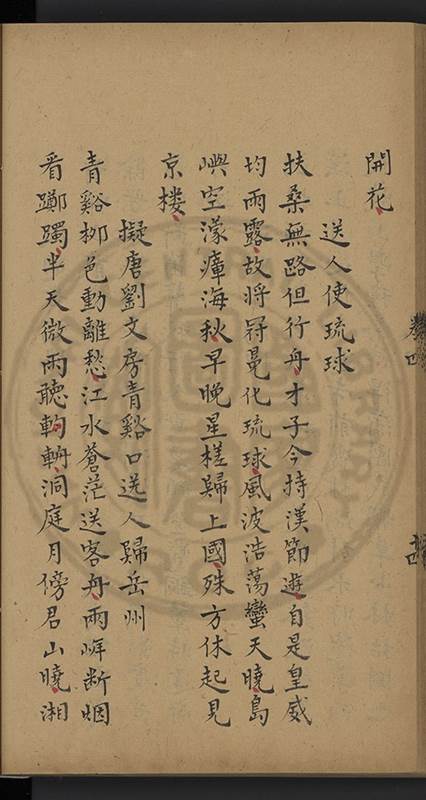 開花
送人使琉球
扶桑無路但行舟才子今持漢節遊自是皇威
均雨露故將冠冕化琉球風波浩蕩蠻天曉島
嶼空濛瘴海秋早晚星槎歸上國殊方休起見
京楼
擬唐劉文房青谿口送人歸岳州
青谿栁色動離愁江水蒼茫送客舟雨岸断烟
看躑躅半天微雨聽鈎輈洞庭月傍君山曉湘